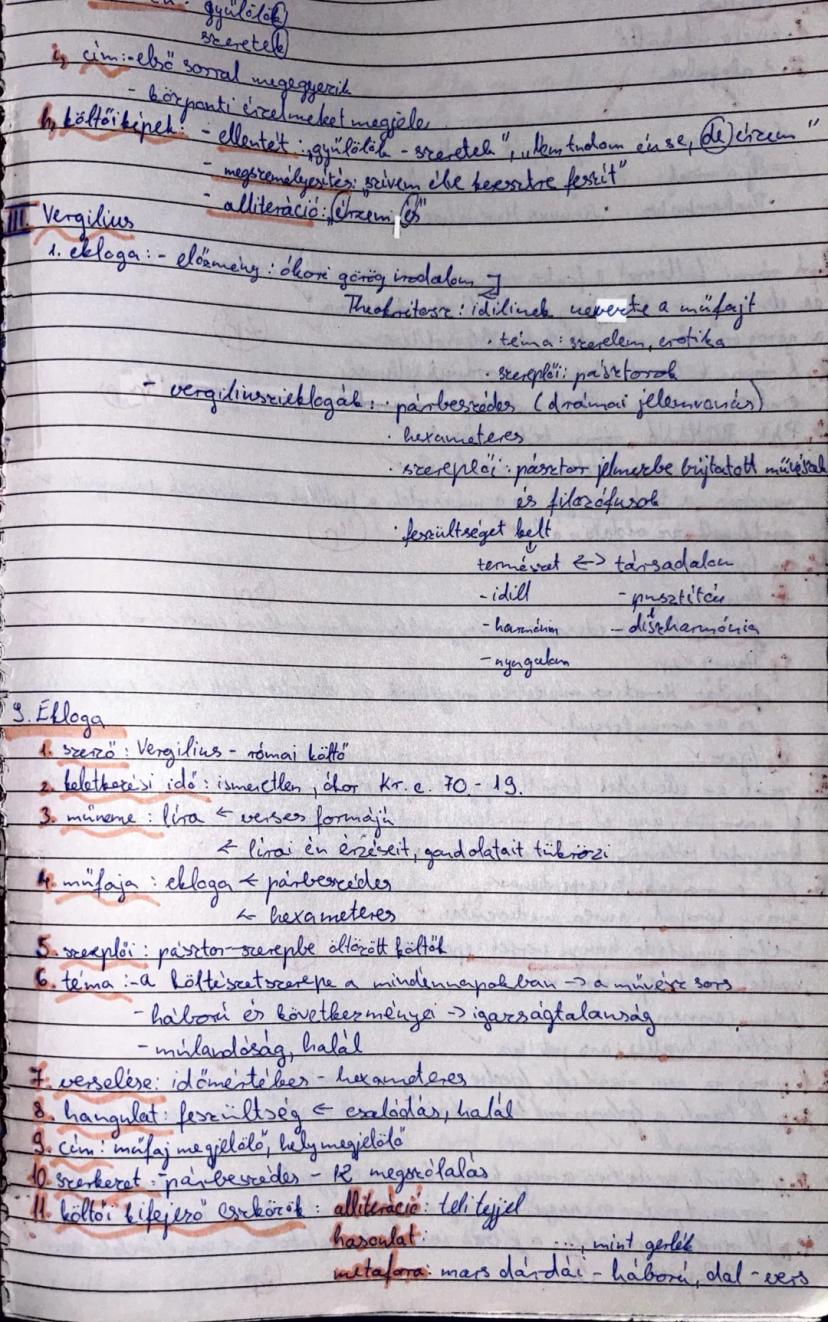 gyűlölök
szeretek
i, cím: - első sorral megegyezik
- központi érzelmeket megjele
h, költői képek: - ellentét: „gyűlölök - szeretek", „Nem tudom én se, de érzem"
- megszemélyesítés: „szívem ébe keresztre feszít"
- alliteráció: „érzem, és"
III. Vergilius
1. ekloga: - előzmény: ókori görög irodalom
Theokritosz: idillinek nevezte a műfajt
· téma: szerelem, erotika
· szereplői: pásztorok
- vergiliuszieklogák: · párbeszédes (drámai jelenvonás)
· hexameteres
· szereplői: pásztor jelmezbe bújtatott művészek
és filozófusok
· feszültséget kelt
természet <-> társadalom
- idill - pusztítás
- harmónia - diszharmónia
- nyugalom
9. Ekloga
1. szerző: Vergilius - római költő
2. keletkezési idő: ismeretlen, ókor Kr. e. 70. - 19.
3. műneme: líra ← verses formájú
← lírai én érzéseit, gondolatait tükrözi
4. műfaja: ekloga ← párbeszédes
← hexameteres
5. szereplői: pásztor-szerepbe öltözött költők
6. téma: - a költészet szerepe a mindennapokban -> a művész sors
- háború és következményei -> igazságtalanság
- múlandóság, halál
7. verselése: időmértékes - hexameteres
8. hangulat: feszültség ← csalódás, halál
9. cím: műfaj megjelölő, hely megjelölő
10. szerkezet - párbeszédes - 12 megszólalás
11. költői kifejező eszközök: alliteráció: teli tejjel
hasonlat: ..., mint gerlék
metafora: mars dárdái - háború, dal - vers